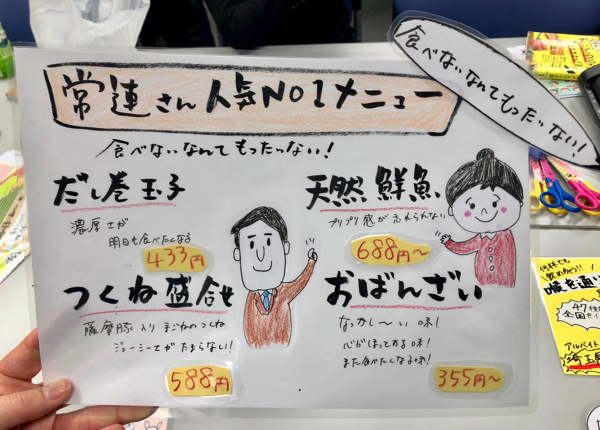 常連さん人気NO1メニュー
食べないなんてもったいない!
食べないなんてもったいない!
だし巻玉子
濃厚さが
明日も食べたくなる
433円
天然鮮魚
プリプリ感が忘れられない
688円~
つくね盛合せ
薩摩豚入り まごわのつくね
ジューシーさがたまらない!
588円
おばんざい
なつかし~い味!
心がほってりする味!
また食べたくなる味!
355円~
喉を通
47種
全国をイ
アルバイト
埼玉